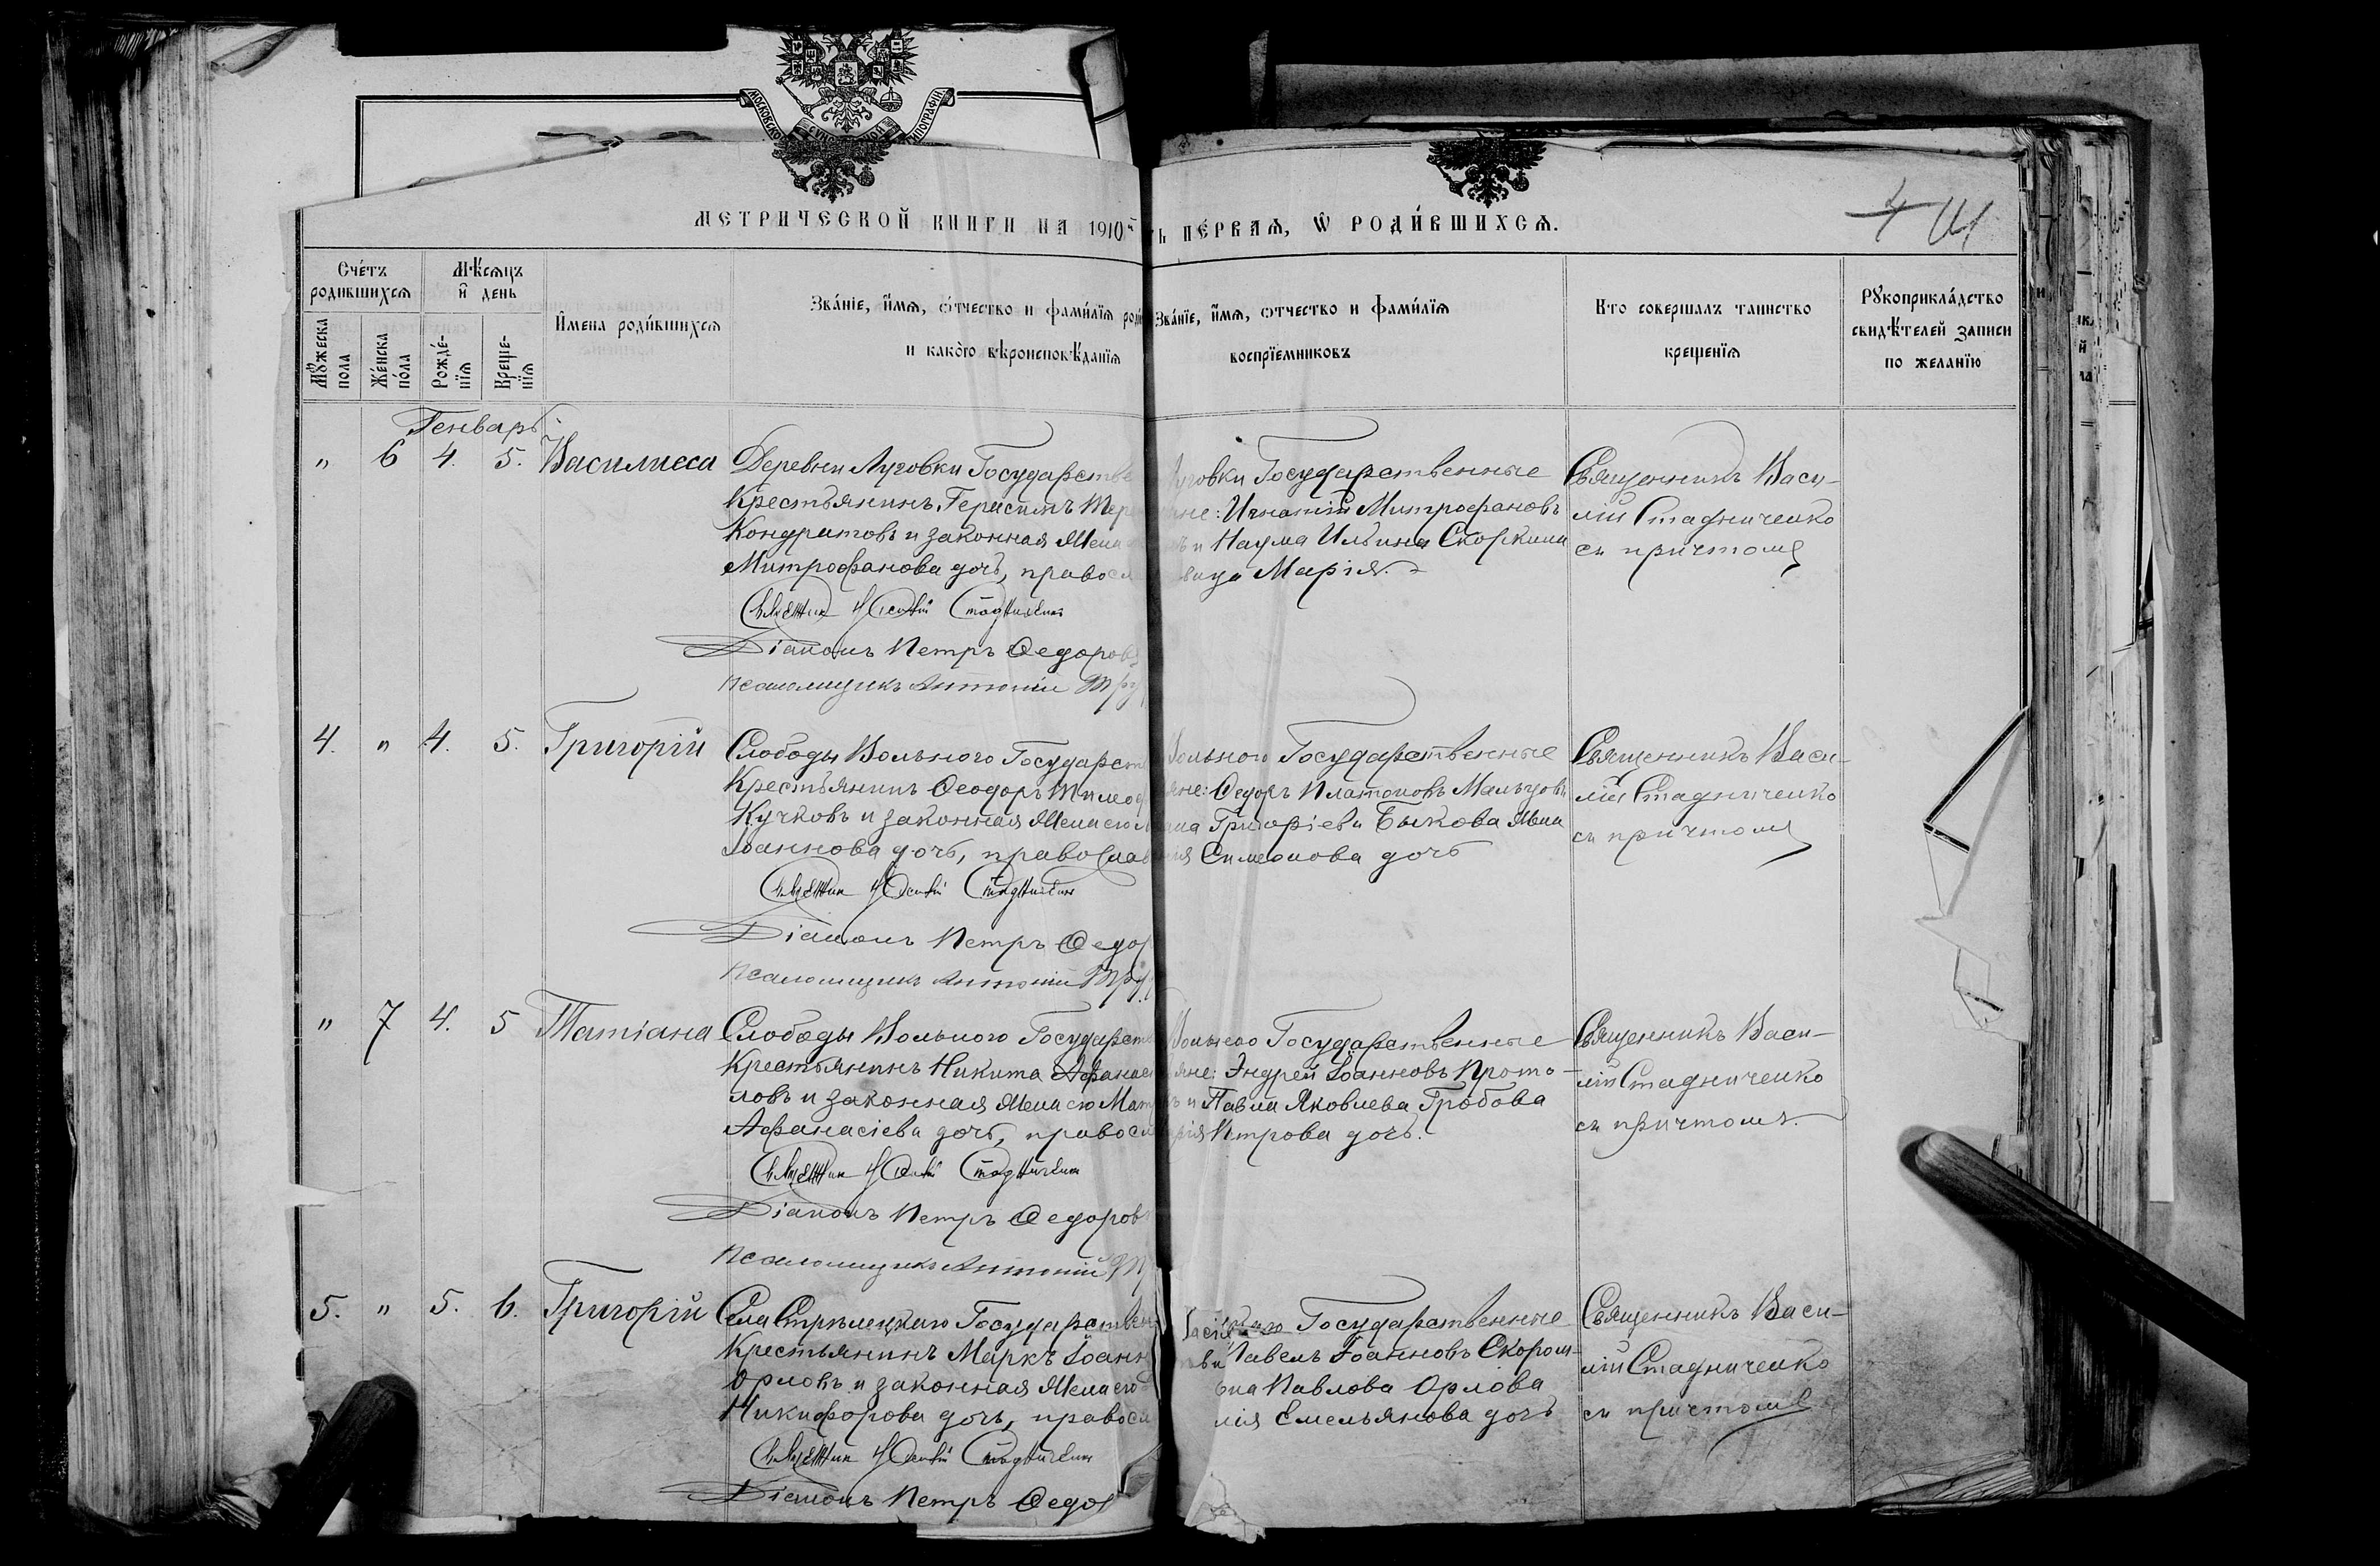 МОСКОВСКОЙ СѴНОДАЛЬНОЙ ТИПОГРАФІИ
МЕТРИЧЕСКОЙ КНИГИ НА 1910
Ь ПЕ́РВАЯ, Ѡ҆ РОДИ́ВШИХСЯ.
4
Сче́тъ родившихсѧ
Мѣ́сѧцъ и҆ день
Мꙋ́жеска пола
Же́нска по́ла
Рожде́-нїѧ
Креще-нїѧ
И҆мена роди́вшихсѧ
Зва́нїе, и҆́мѧ, ѻ҆́тчество и фами́лїѧ роди
и како́гѡ вѣроисповѣ́данїѧ
Зва́нїе, и҆́мѧ, ѻтчество и фами́лїѧ
воспрїемниковъ
Кто совершалъ таинство
крещенїѧ
Рꙋкоприкла́дство
свидѣ́телей записи
по желанїю
Генварь
" 6 4. 5. Василиса
Деревни Луговки Государстве
Крестьянинъ Герасимъ Тере
Кондратовъ и законная Жена
Митрофанова дочь, правосл
Священникъ Василій Стадниченко
Діаконъ Петръ Ѳедоровъ
Псаломщикъ Антоній Тру
уговки Государственные
яне: Игнатій Митрофановъ
ъ и Наума Ильина Скоркина
вица Марія.
Священникъ Васи-
лій Стадниченко
съ причтомъ
4. " 4. 5. Григорій
Слободы Вольного Государст
Крестьянинъ Ѳеодоръ Тимоѳ
Кучковъ и законная Жена его
Іоаннова дочь, православ
Священникъ Василій Стадниченко
Діаконъ Петръ Ѳедор
Псаломщикъ Антоній Тру
Вольного Государственные
яне: Ѳедоръ Платоновъ Мальцовъ
Григоріева Быкова Жена
ія Симеонова дочь
Священникъ Васи-
лій Стадниченко
съ причтомъ
" 7 4. 5 Татіана
Слободы Вольного Государст
Крестьянинъ Никита Аѳанас
ловъ и законная Жена его Мат
Аѳанасіева дочь, правосл
Священникъ Василій Стадниченко
Діаконъ Петръ Ѳедоровъ
Псаломщикъ Антоній Т
Вольного Государственные
яне: Андрей Іоанновъ Прото-
ъ и Павла Яковлева Гробова
рія Петрова дочь.
Священникъ Васи-
лій Стадниченко
съ причтомъ.
5. " 5. 6. Григорій
Села Стрѣлецкаго Государствен
Крестьянинъ Маркъ Іоанн
Орловъ и законная Жена его
Никифорова дочь, правосл
Священникъ Василій Стадниченко
Діаконъ Петръ Ѳедо
Государственные
Павелъ Іоанновъ Скором-
Павлова Орлова
лія Емельянова дочь
Священникъ Васи-
лій Стадниченко
съ причтомъ